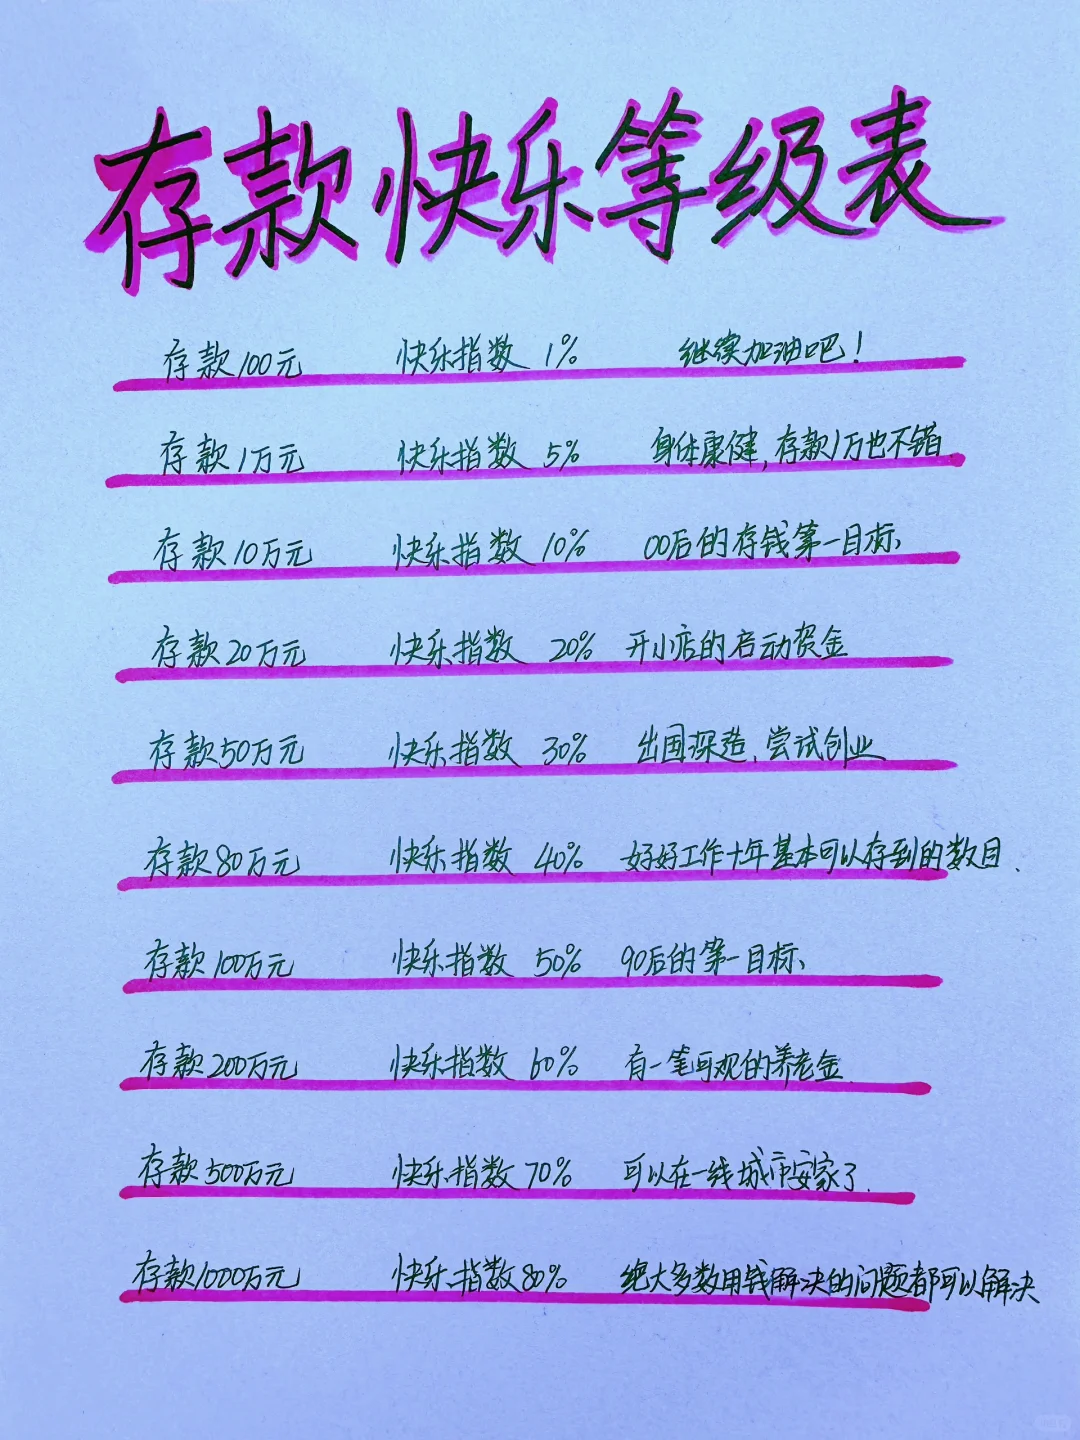 存款快乐等级表
存款100元 快乐指数 1% 继续加油吧！
存款1万元 快乐指数 5% 身体康健,存款1万也不错.
存款10万元 快乐指数 10% 00后的存钱第一目标、
存款20万元 快乐指数 20% 开小店的启动资金
存款50万元 快乐指数 30% 出国深造,尝试创业
存款80万元 快乐指数 40% 好好工作十年基本可以存到的数目.
存款100万元 快乐指数 50% 90后的第一目标、
存款200万元 快乐指数 60% 有一笔可观的养老金.
存款500万元 快乐指数 70% 可以在一线城市安家了.
存款1000万元 快乐指数 80% 绝大多数用钱解决的问题都可以解决